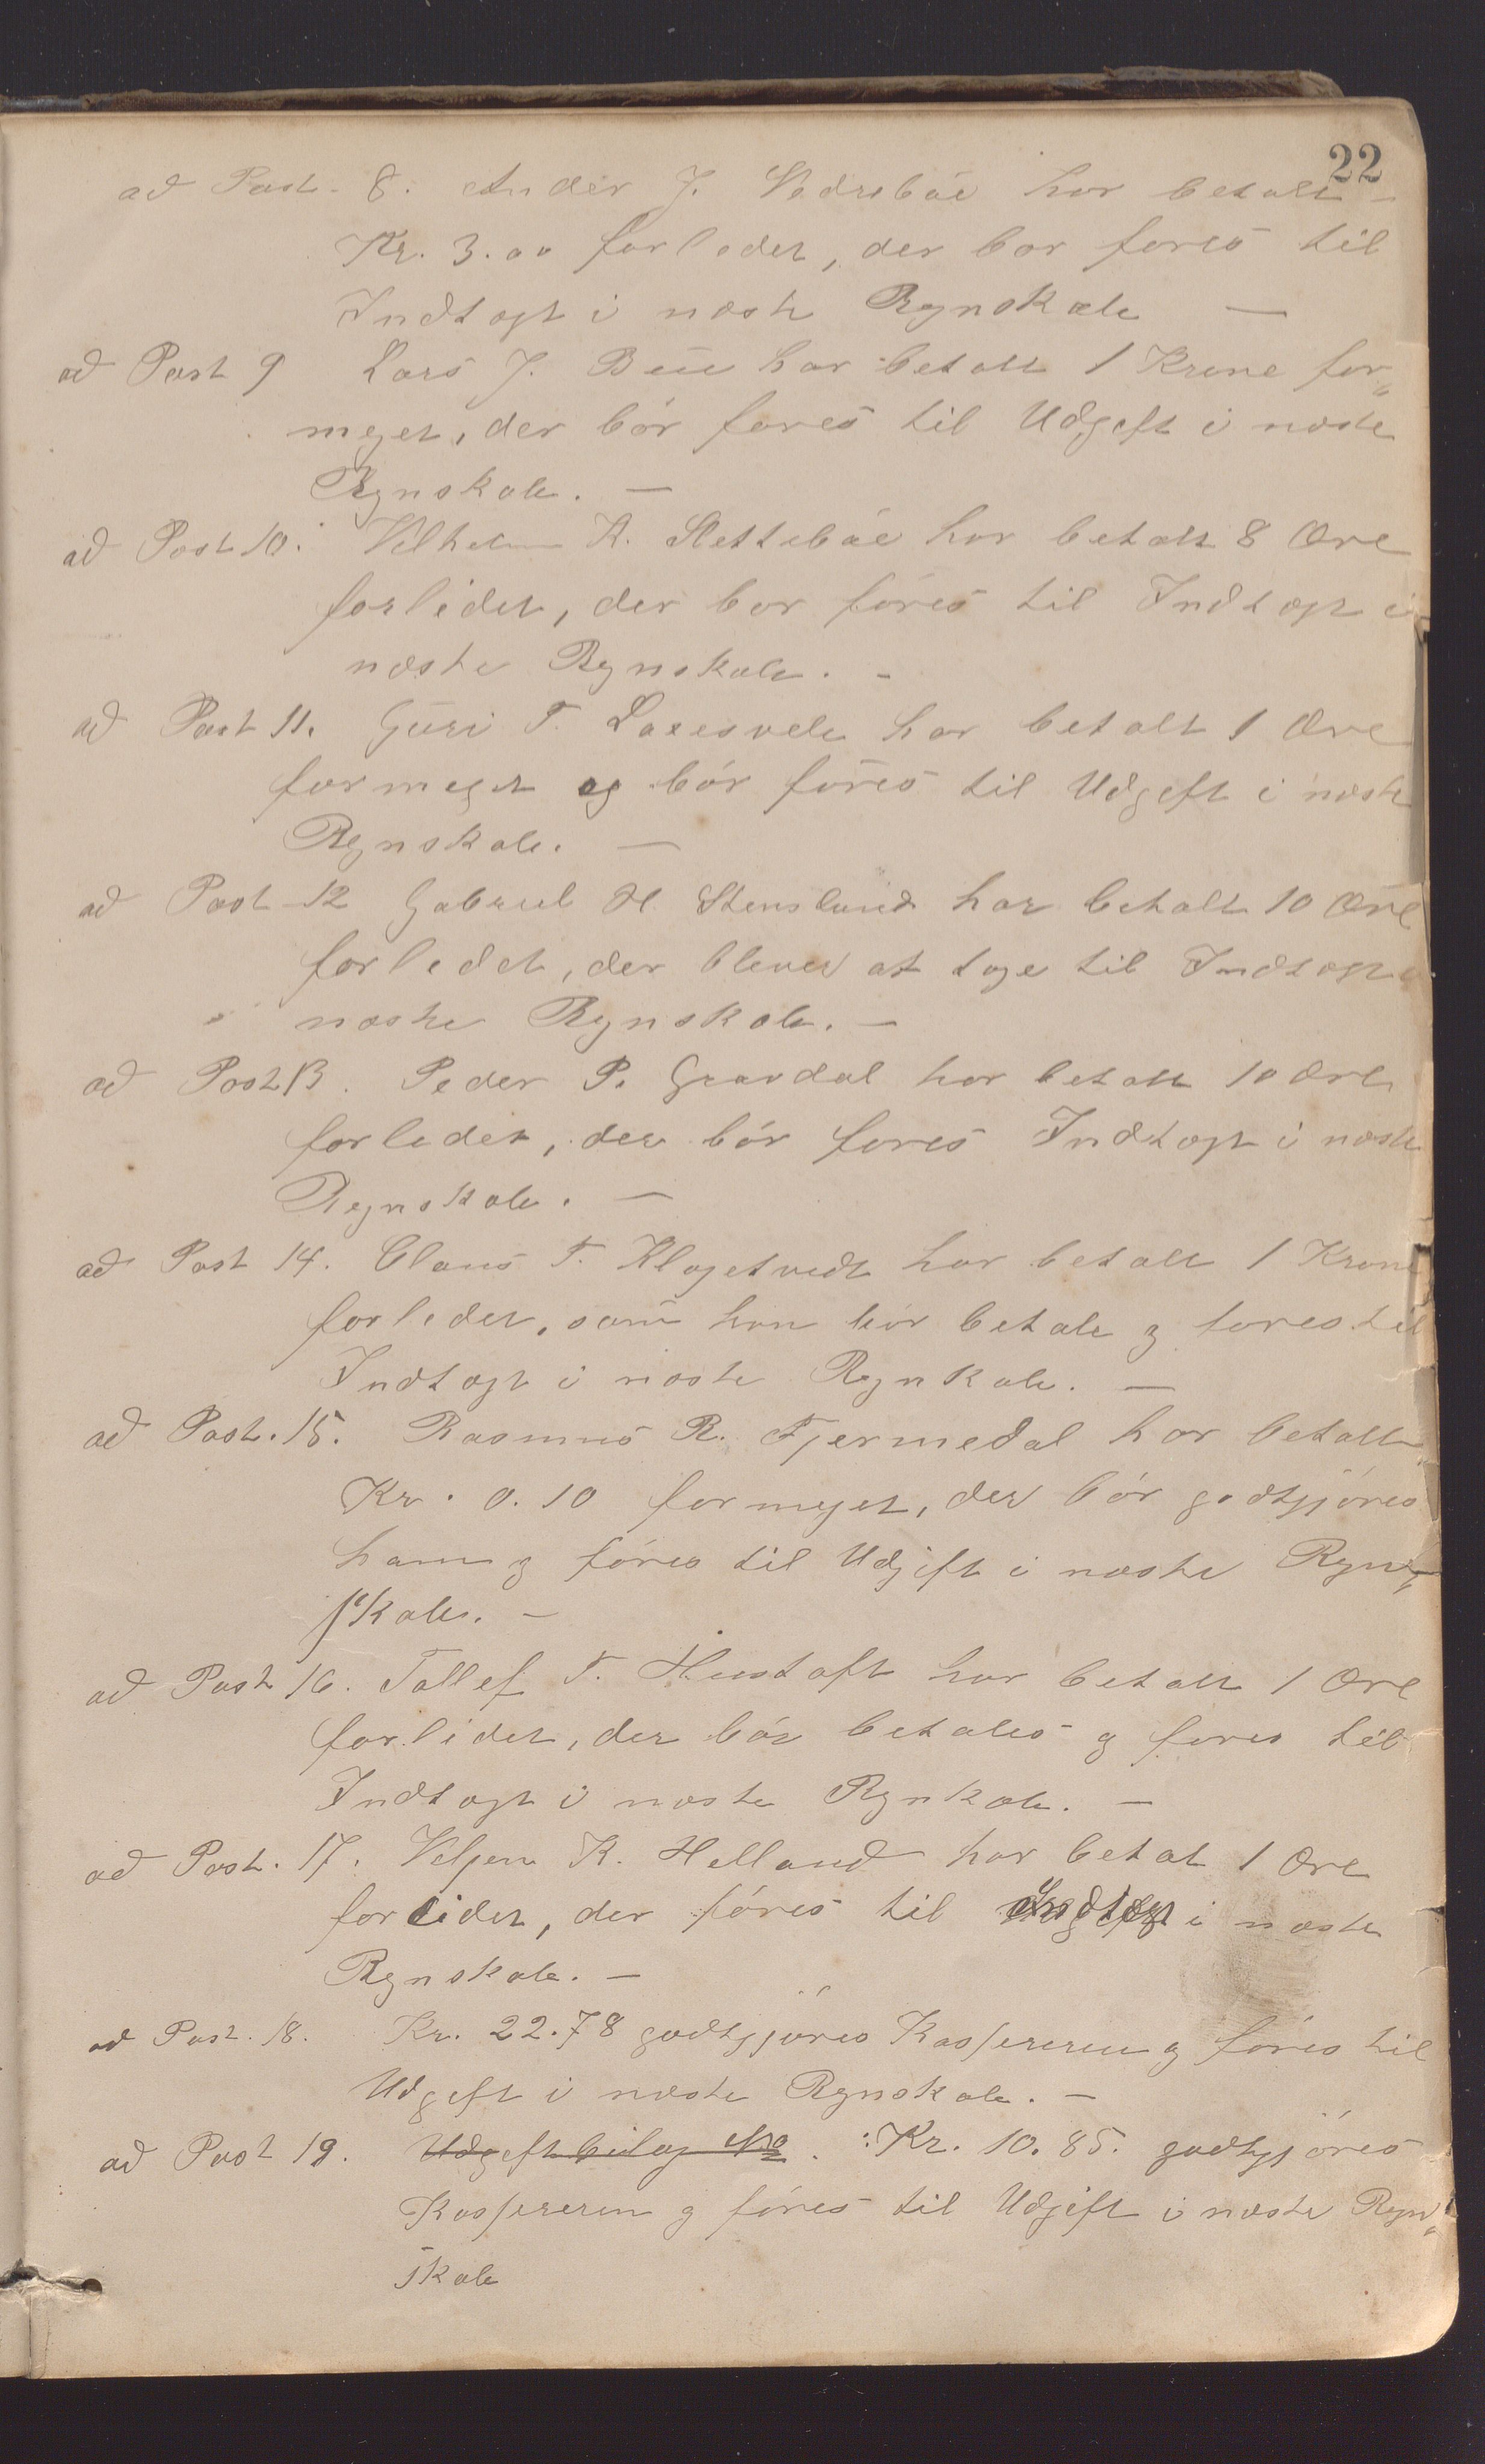 22
ad Post. 8. Ander J. Vedrebøe har betalt
Kr. 3.00 forlidet, der bør føres til
Indtægt i næste Regnskab —
ad Post 9 Lars J. Bue har betalt 1 Krone for„
meget, der bør føres til Udgift i næste
Regnskab. —
ad Post 10. Vilhelm K. Slettebøe har betalt 8 Øre
forlidet, der bør føres til Indtægt i
næste Regnskab. -
ad Post 11. Guri T. har betalt 1 Øre
formeget og bør føres til Udgift i næste
Regnskab. —
ad Post 12 Gabriel H Stensland har betalt 10 Øre
forlidet, der bliver at tage til Indtægt i
næste Regnskab. —
ad Post 13. Peder P. Gravdal har betalt 10 Øre
forlidet, der bør føres Indtægt i næste
Regnskab. —
ad Post 14. Claus T. Klagetvedt har betalt 1 Krone
forlidet, som han bør betale og føres til
Indtægt i næste Regnkab. —
ad Post. 15. Rasmus R. Fjermedal har betalt
Kr. 0.10 formeget, der bør godtgjøres
ham og føres til Udgift i næste Regn„
skab. —
ad Post 16. Tollef T. Hustoft har betalt 1 Øre
forlidet, der bør betales og føres til
Indtægt i næste Regnkab. —
ad Post. 17. Veljen K. Helland har betalt 1 Øre
forlidet, der føres til Indtægt i næste
Regnskab. —
ad Post. 18. Kr. 22.78 godtgjøres Kassereren og føres til
Udgift i næste Regnskab. —
ad Post 19. Udgiftbilag No. : Kr. 10.85. godtgjøres
Kassereren og føres til Udgift i næste Regn„
skab